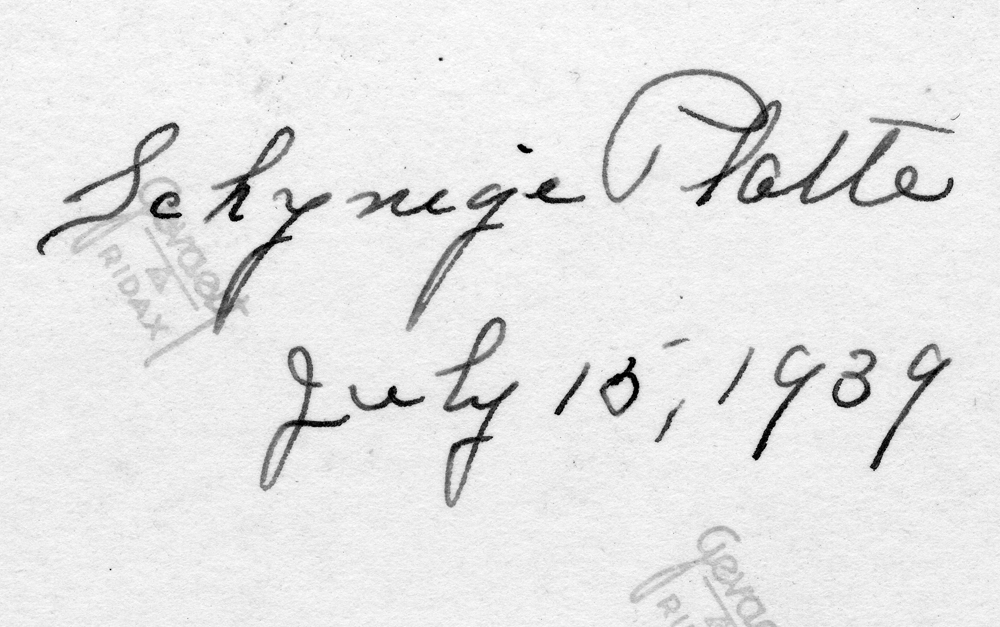 Schynige Platte
July 15, 1939
Gevaert
RIDAX
Gevae
RI